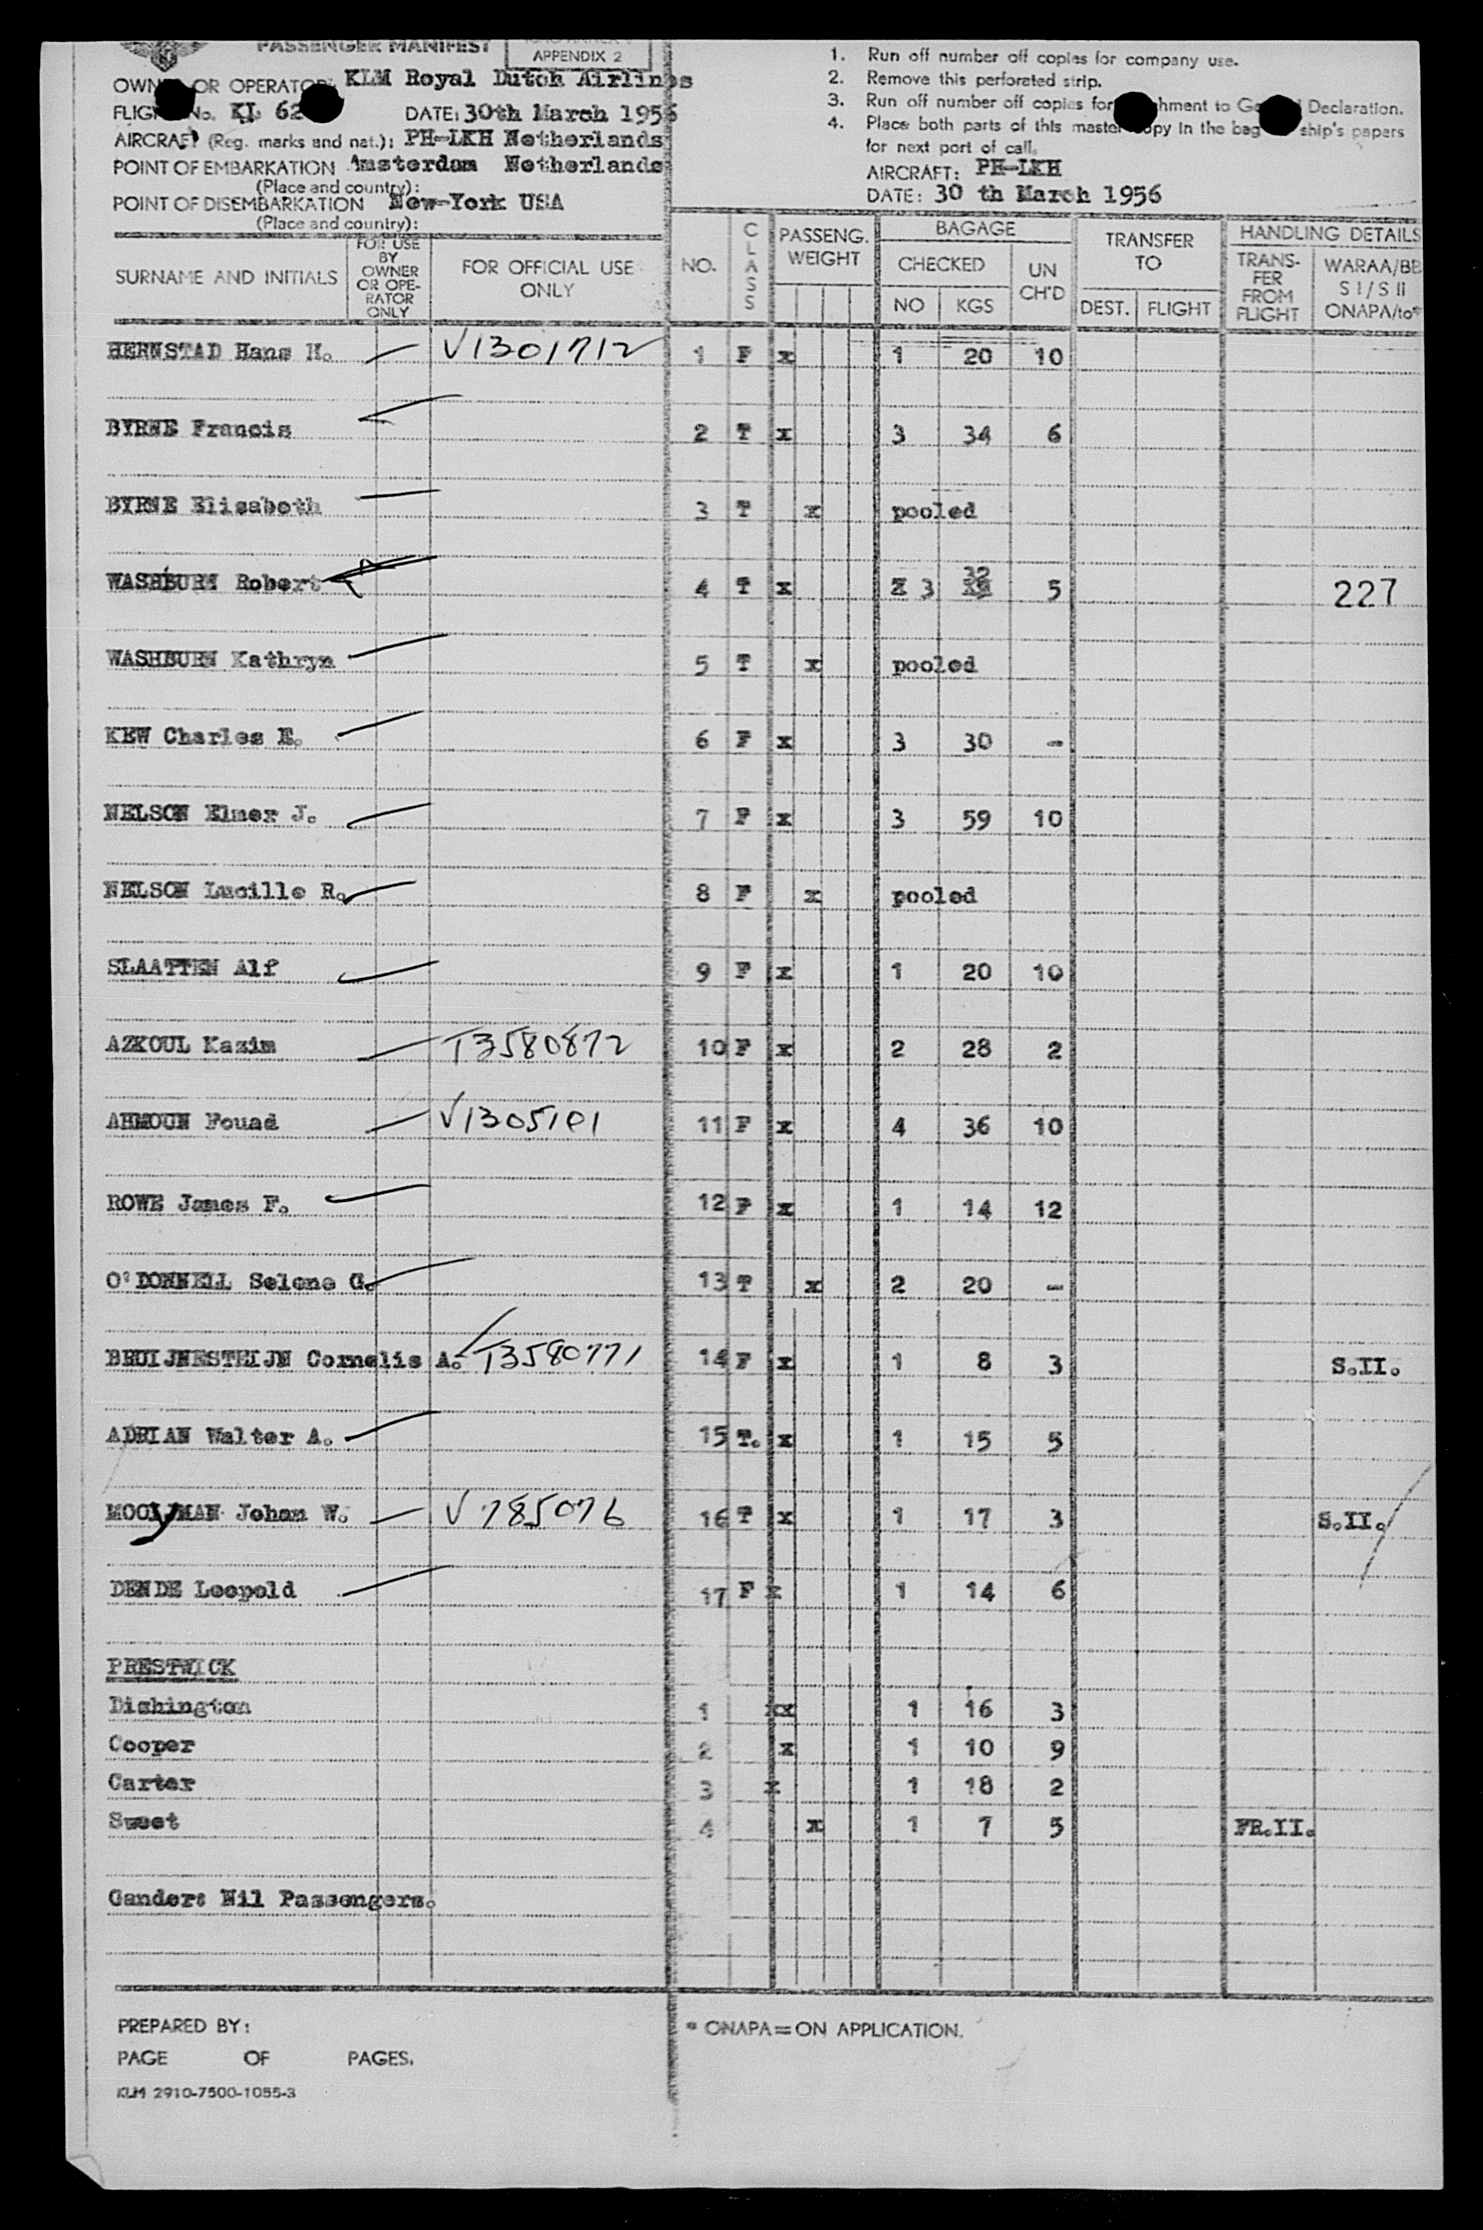 PASSENGER MANIFEST
APPENDIX 2
OWN OR OPERATOR: KLM Royal Dutch Airlines
No. KL 62
DATE: 30th March 1956
AIRCRAFT (Reg. marks and nat.): PH-LKH Netherlands
POINT OF EMBARKATION Amsterdam Netherlands
(Place and country):
POINT OF DISEMBARKATION New-York USA
(Place and country):
1. Run off number off copies for company use.
2. Remove this perforated strip.
3. Run off number off copies for hment to Declaration.
4. Place both parts of this master opy in the bag ship's papers
for next port of call.
AIRCRAFT: PH-LKH
DATE: 30 th March 1956
SURNAME AND INITIALS
FOR USE BY OWNER OR OPE-RATOR ONLY
FOR OFFICIAL USE ONLY
NO.
CLASS
PASSENG. WEIGHT
BAGAGE
CHECKED
NO KGS
UN CH'D
TRANSFER TO
DEST. FLIGHT
HANDLING DETAILS
TRANS-FER FROM FLIGHT
WARAA/BB
S I / S II
ONAPA/to*
HERNSTAD Hans N. V1301712 1 F x 1 20 10
BYRNE Francis 2 T x 3 34 6
BYRNE Elisabeth 3 T x pooled
WASHBURN Robert 4 T x 3 32 5 227
WASHBURN Kathryn 5 T x pooled
KEW Charles E. 6 F x 3 30 -
NELSON Elmer J. 7 F x 3 59 10
NELSON Lucille R. 8 F x pooled
SLAATTEN Alf 9 F x 1 20 10
AZKOUL Kazim T3580872 10 F x 2 28 2
AHMOUN Fouad V1305101 11 F x 4 36 10
ROWE James F. 12 F x 1 14 12
O'DONNELL Selene G. 13 T x 2 20 -
BRUIJNESTEIJN Cornelis A. T3580771 14 F x 1 8 3 S.II.
ADRIAN Walter A. 15 T. x 1 15 5
MOOYMAN Johan W. V785076 16 T x 1 17 3 S.II.
DENDE Leopold 17 F x 1 14 6
PRESTWICK
Dishington 1 xx 1 16 3
Cooper 2 x 1 10 9
Carter 3 x 1 18 2
Sweet 4 x 1 7 5 FR.II.
Gander: Nil Passengers.
PREPARED BY:
* ONAPA=ON APPLICATION.
PAGE OF PAGES.
KLM 2910-7500-1055-3